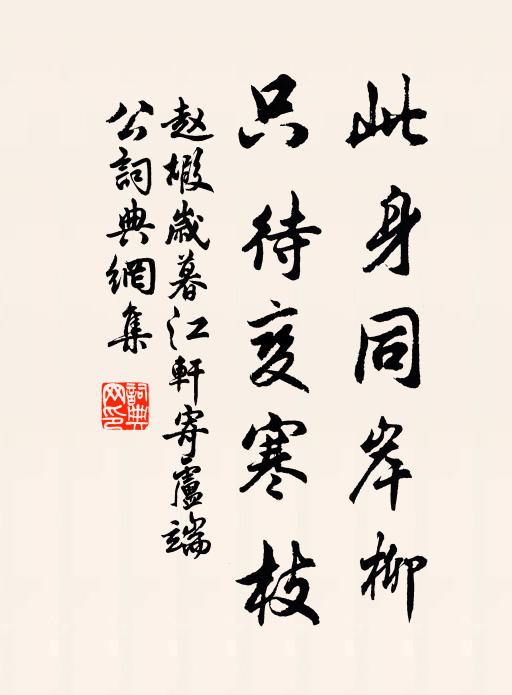 此身同岸柳
只待变寒枝
赵嘏岁暮江轩寄盧端
公詞典網集
詞典網印